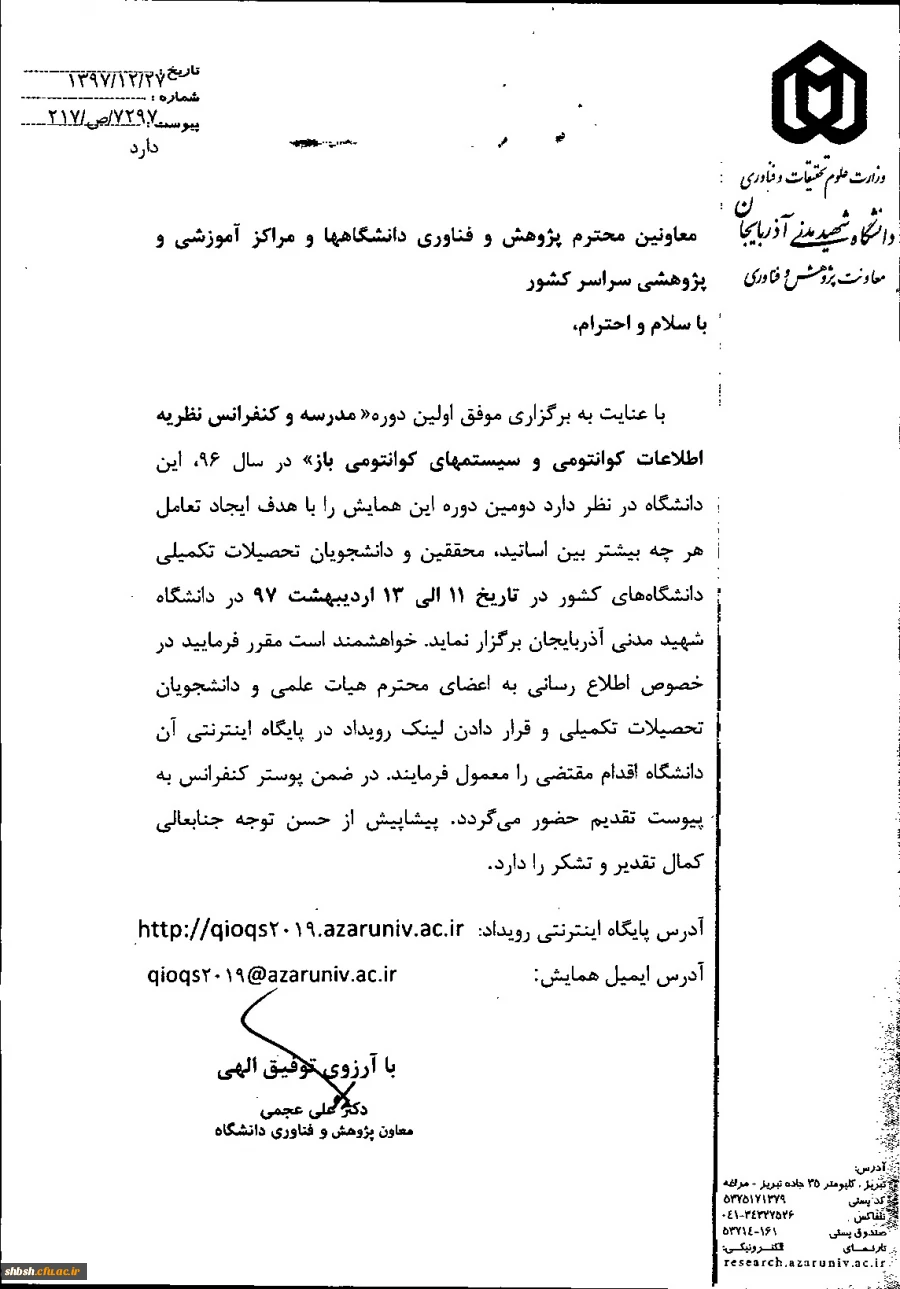 تاریخ : ۱۳۹۷/۱۲/۲۷
شماره :
پیوست : ۷۲۹۷/ص/۲۱۷
دارد
وزارت علوم تحقیقات و فناوری
دانشگاه شهید مدنی آذربایجان
معاونت پژوهش و فناوری
معاونین محترم پژوهش و فناوری دانشگاهها و مراکز آموزشی و
پژوهشی سراسر کشور
با سلام و احترام،
با عنایت به برگزاری موفق اولین دوره« مدرسه و کنفرانس نظریه
اطلاعات کوانتومی و سیستمهای کوانتومی باز» در سال ۹۶، این
دانشگاه در نظر دارد دومین دوره این همایش را با هدف ایجاد تعامل
هر چه بیشتر بین اساتید، محققین و دانشجویان تحصیلات تکمیلی
دانشگاه‌های کشور در تاریخ ۱۱ الی ۱۳ اردیبهشت ۹۷ در دانشگاه
شهید مدنی آذربایجان برگزار نماید. خواهشمند است مقرر فرمایید در
خصوص اطلاع رسانی به اعضای محترم هیات علمی و دانشجویان
تحصیلات تکمیلی و قرار دادن لینک رویداد در پایگاه اینترنتی آن
دانشگاه اقدام مقتضی را معمول فرمایند. در ضمن پوستر کنفرانس به
پیوست تقدیم حضور می‌گردد. پیشاپیش از حسن توجه جنابعالی
کمال تقدیر و تشکر را دارد.
آدرس پایگاه اینترنتی رویداد: http://qioqs۲۰۱۹.azaruniv.ac.ir
آدرس ایمیل همایش: qioqs۲۰۱۹@azaruniv.ac.ir
با آرزوی توفیق الهی
دکتر علی عجمی
معاون پژوهش و فناوری دانشگاه
آدرس:
تبریز ، کیلومتر ۳۵ جاده تبریز - مراغه
کد پستی ۵۳۷۵۱۷۱۳۷۹
تلفاکس . ۰۴۱-۳۴۳۲۷۵۲۶
صندوق پستی ۵۳۷۱۴-۱۶۱
تارنمای الکترونیکی:
research.azaruniv.ac.ir
shbsh.cfu.ac.ir